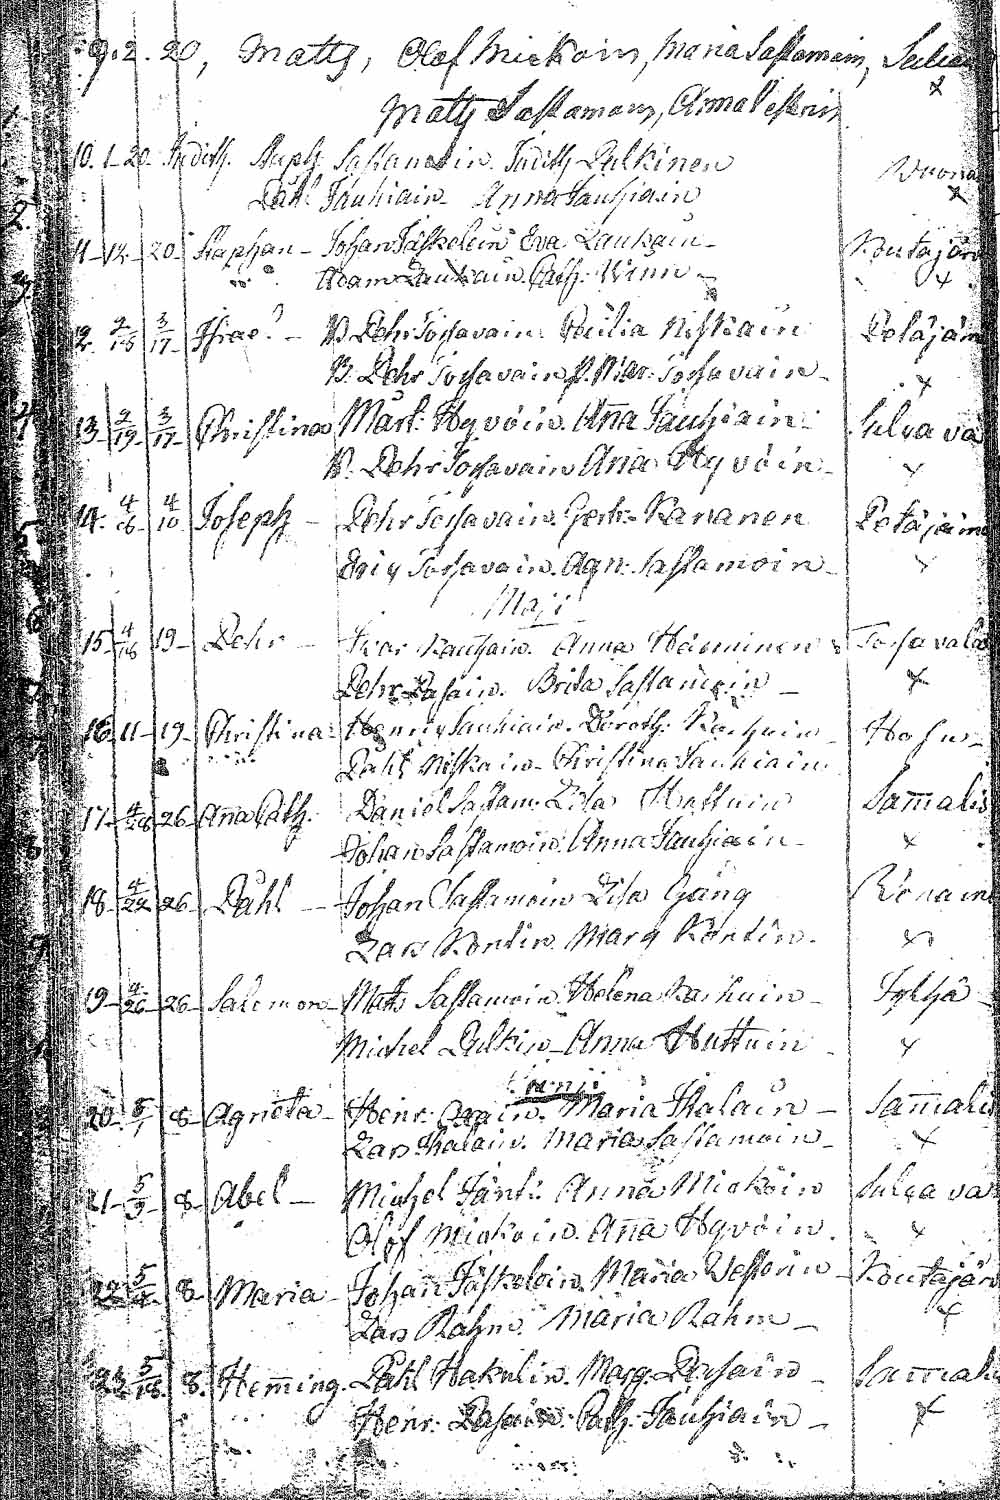 9. 2. 20, Matts, Olof Mickoin, Maria Sastamoin,
Matts Sastamoin, Anna
10. 1. 20. Judith. Staph Sastamoin. Judith Pulkinen
Påhl Jauhiain Anna Jauhiain
11 - 12 - 20 - Staphan - Johan Jäskeläin Eva Laukain - Koutajärv
Adam Laukain. Cath. Winn -
12. 2/18 3/17 - P. Pehr Torsavain. Cecilia Niskain Petäjäm
P. Pehr Torsavain Mar: Torsavain -
13 - 2/19 - 3/17 - Christina Mårt: Hyvöin. Aña Jauhiain. Sulga va
P. Pehr Torsavain Ana Hyvöin -
14. 4/6 - 4/10 - Joseph - Pehr Torsavain. Gertr. Kananen Petäjäm
Eric Torsavain. Agn: Sastamoin -
Maji
15 - 4/18 19 - Pehr - Ivar Kauhain. Anna Hänninen Torsavala
Pehr Pasain. Brita Sastamoin -
16 - 11 - 19 - Christina - Henric Jauhiain. Doroth:
Påhl Niskain - Christina Jauhiain
17 - 4/28 - 26 - Aña Cath. Daniel Sastam: Lisa Hattuin Sam̄alis
Johan Sastamoin. Anna Jauhiain -
18 - 4/24 - 26 - Påhl - Johan Sastamoin Lisa Gång
Lars Kontin. Marg Kontin.
19 - 4/26 - 26 - Salomon - Matts Sastamoin. Helena Karhuin -
Michel Pulkin - Anna Huttuin -
Junii
20 - 5/1 8 - Agneta - Heinr: Maria Ikälain - Sam̄alis
Lars Ikälain. Maria Sastamoin -
21 - 5/3 - 8 - Abel - Michel Jänt: Anna Mickoin Sulga va
Olof Mickoin. Aña Hyvöin.
22 5/4 - 8 - Maria - Johan Jäskeläin. Maria - Koutajärv
Lars Rahm. Maria Rahm -
23 5/18 8. Hem̄ing. Påhl Hakulin. Marg. Pasain - Sam̄ali
Henr. Pasain. Cath. Jauhiain -